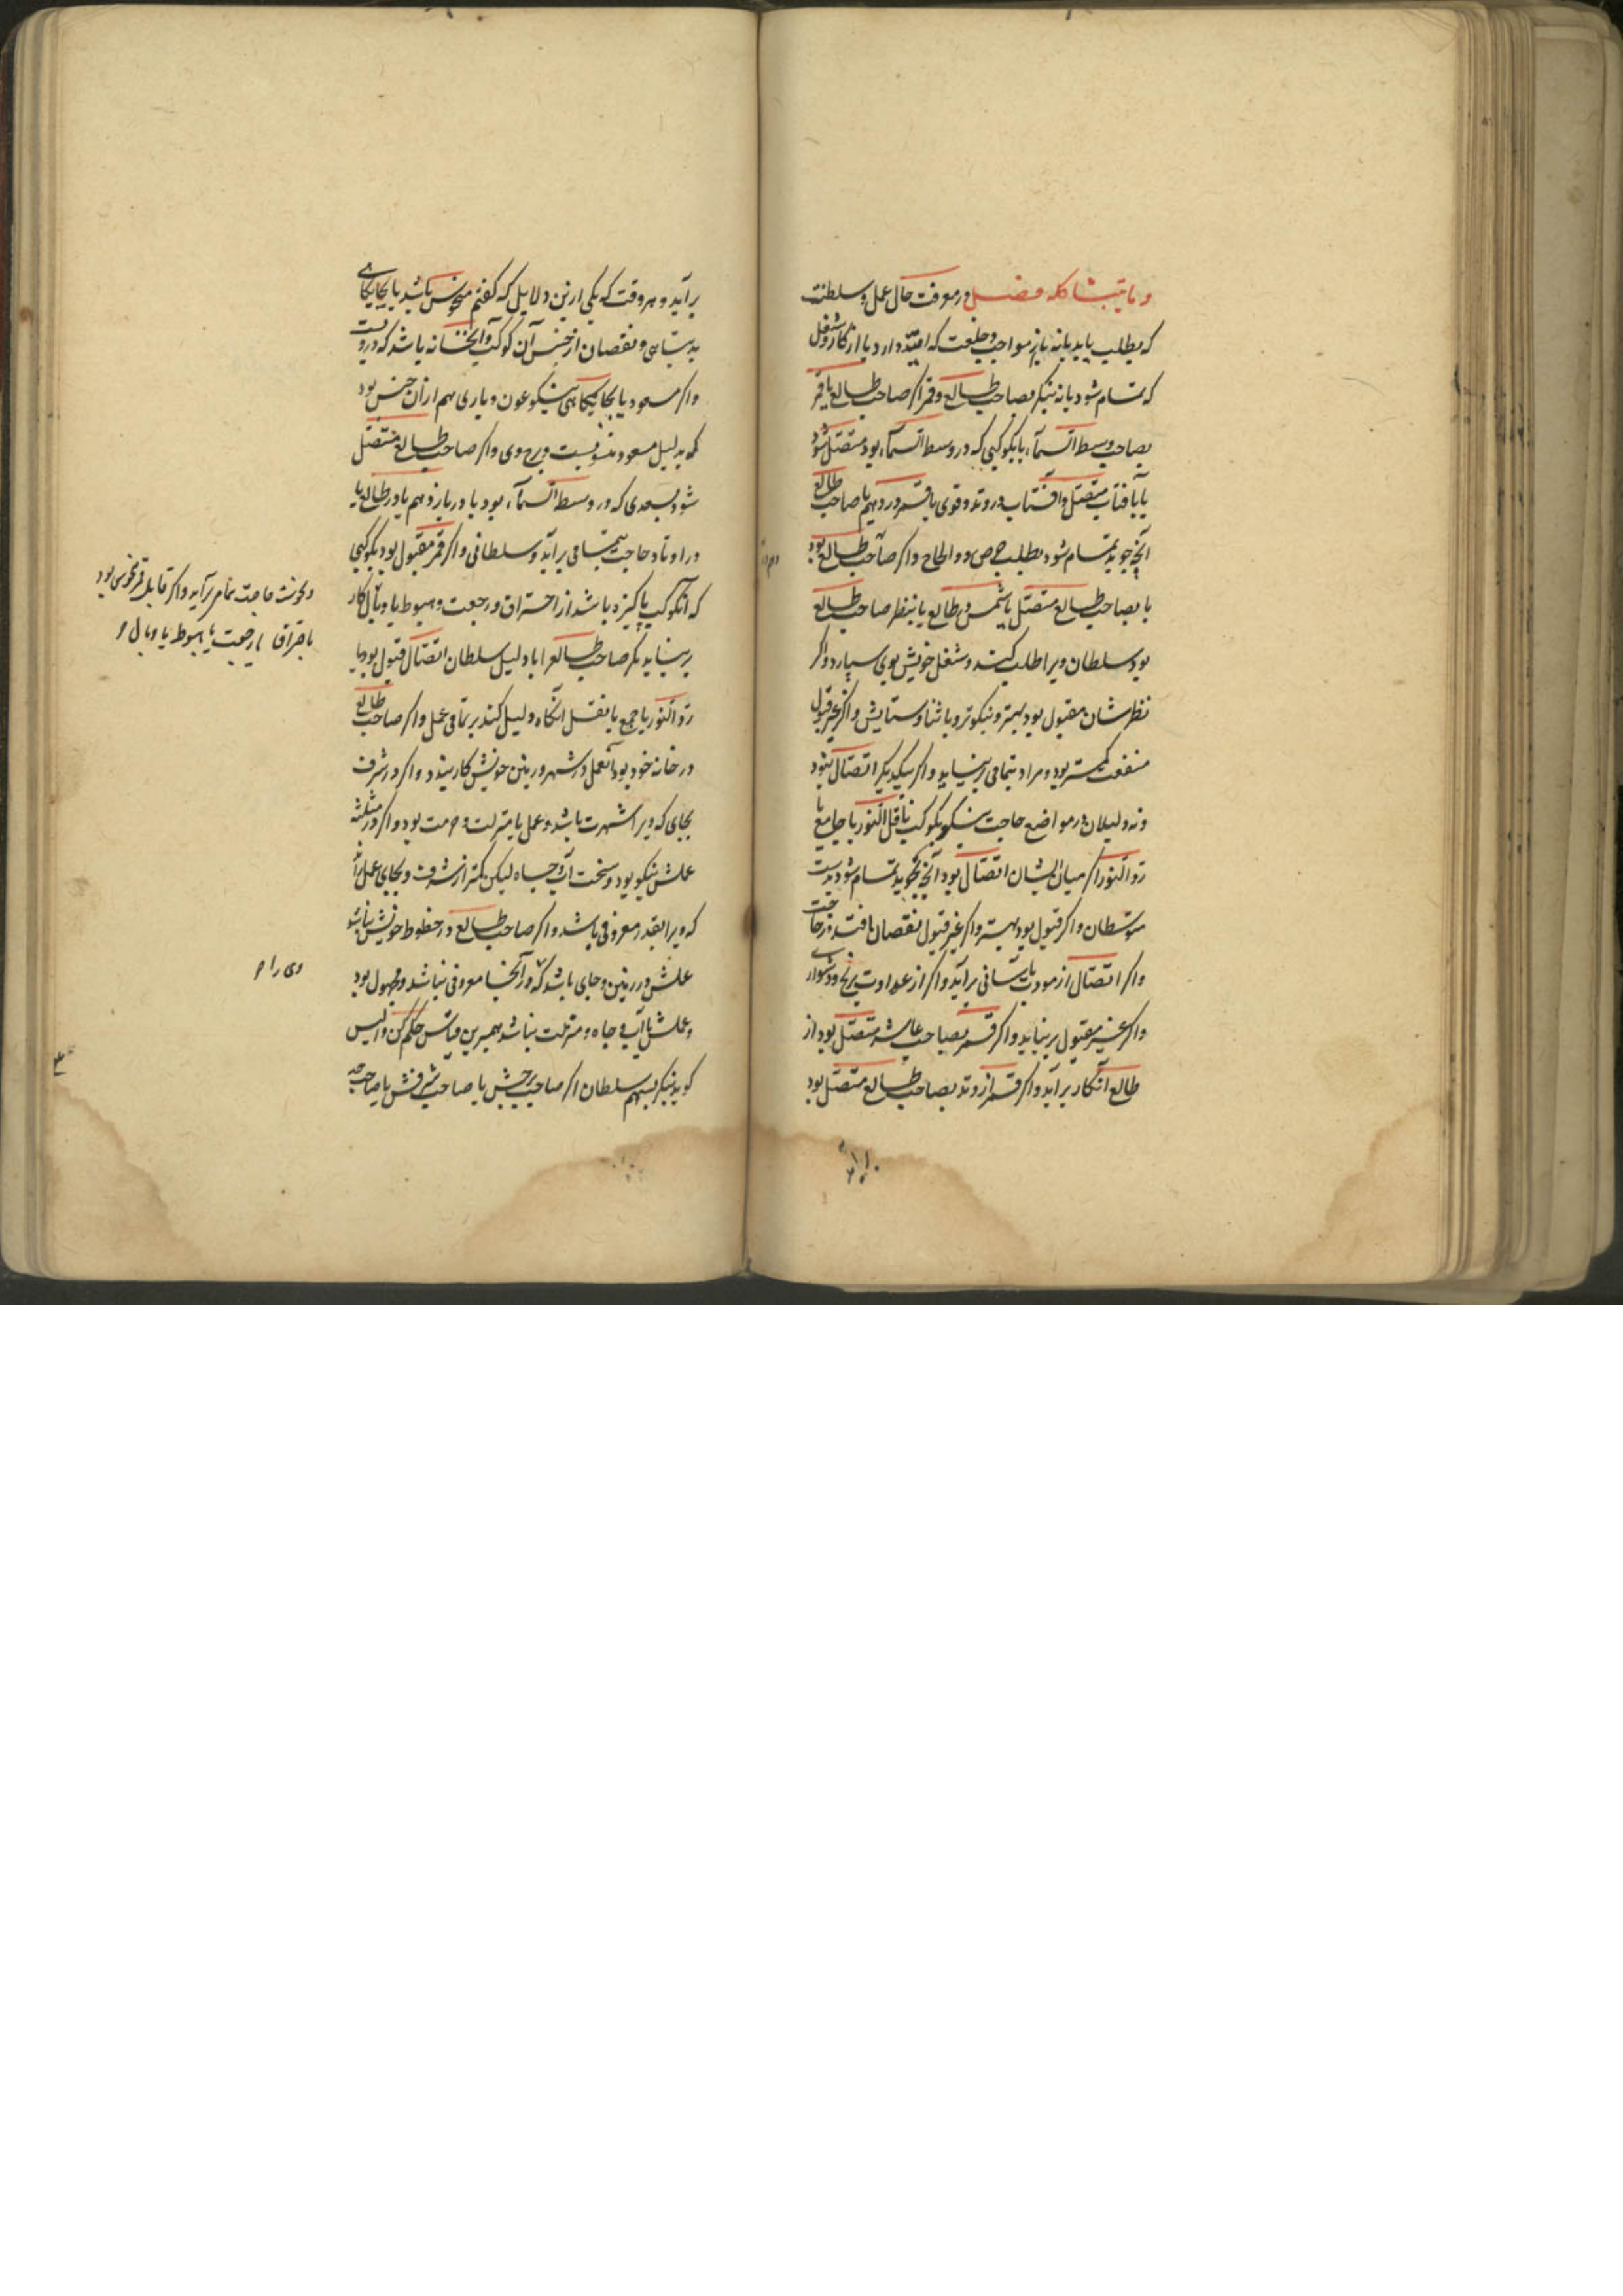 و ما یتبشاکله فصل در معرفت حال عمل و سلطنت
که بطلب یابد یا نه یا از مواجب و خلعت که امید دارد یا از کار و شغل
که تمام شود یا نه بنگر بصاحب طالع و قمر اگر صاحب طالع یا قمر
بصاحب وسط السماء یا بکوکبی که در وسط السماء بود متصل شود
یا بآفتاب متصل و آفتاب در وتد و قوی یا قمر در دهم یا صاحب طالع
آنچ جوید تمام شود بطلب حرص و الحاح و اگر صاحب طالع بود
یا بصاحب طالع متصل یا شمس در طالع یا بنظر صاحب طالع
بود سلطان ویرا طلب کند و شغل خویش بوی سپارد و اگر
نظرشان مقبول بود بهتر و نیکوتر و با ثنا و ستایش و اگر غیر قبول
منفعت کمتر بود و مراد بتمامی برنیاید و اگر بیکدیگر اتصال نبود
و نه دلیلان در مواضع حاجت بنگر بکوکب ناقل النور یا جامع یا
رد النور اگر میان ایشان اتصال بود آنچ بجوید تمام شود بدست
متوسطان و اگر قبول بود بهتر و اگر غیر قبول نقصان افتد در حاجت
و اگر اتصال از مودت بآسانی برآید و اگر از عداوت برنج و دشواری
و اگر غیر مقبول برنیاید و اگر قمر بصاحب عاشر متصل بود از
طالع آنکار برآید و اگر قمر از وتد بصاحب طالع متصل بود
برآید و هر وقت که یکی ازین دلایل که گفتم منحوس باشد یا بجایگاهی
بد تباهی و نقصان از جنس آن کوکب و آنخانه باشد که دروست
و اگر مسعود یا بجایگاهی نیکو عون و یاری هم از آن جنس بود
که بدلیل مسعود منسوبست و برج وی و اگر صاحب طالع متصل
شود بسعدی که در وسط السماء بود یا در یازدهم یا در طالع یا
در اوتاد حاجت بتمامی برآید و سلطانی و اگر قمر مقبول بود بکوکبی
که آنکوکب پاکیزه باشد از احتراق و رجعت و هبوط یا وبال کار
برنیاید مگر صاحب طالع را با دلیل سلطان اتصال قبول بود یا
رد النور یا جمع یا نقل آنگاه دلیل کند بر تمامی عمل و اگر صاحب طالع
در خانه خود بود آنعمل در شهر و زمین خویش کار بندد و اگر در شرف
بجای که ویرا شهرت باشد و عمل با منزلت و حرمت بود و اگر در مثلثه
عملش نیکو بود و سخت آب و جاه لیکن کمتر از شرف و بجای عمل
که ویرا بقدر معروفی باشد و اگر صاحب طالع در حظوظ خویش نباشد
عملش در زمین و جای باشد که در آنجا معروفی نباشد و مجهول بود
و عملش با آب و جاه و منزلت نباشد همبرین قیاس حکم کن و الیس
گوید بنگر بسهم سلطان اگر صاحب برجش یا صاحب شرفش یا صاحب حد
حاجت تمام برآید و اگر قابل قمر نحوسی بود
باحتراق یا رجعت یا هبوط یا وبال
وی را